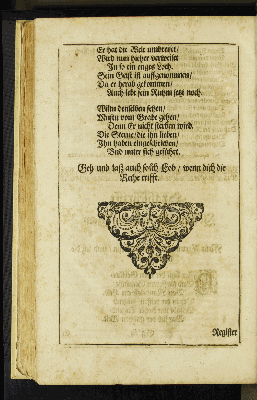 Er hat die Welt umbreitet/
Wird nun hieher verweiset
In so ein enges Loch.
Sein Geist ist auffgenommen/
Da er herab gekommen/
Auch lebt sein Ruhm jetzt noch.
Wilstu denselben sehen/
Mustu vom Grabe gehen/
Denn Er nicht sterben wird.
Die Sterne/die ihn lieben/
Ihn haben eingeschrieben/
Vnd unter sich geführt.
Geh und laß auch solch Lob/ wenn dich die
Reihe trifft.
Register